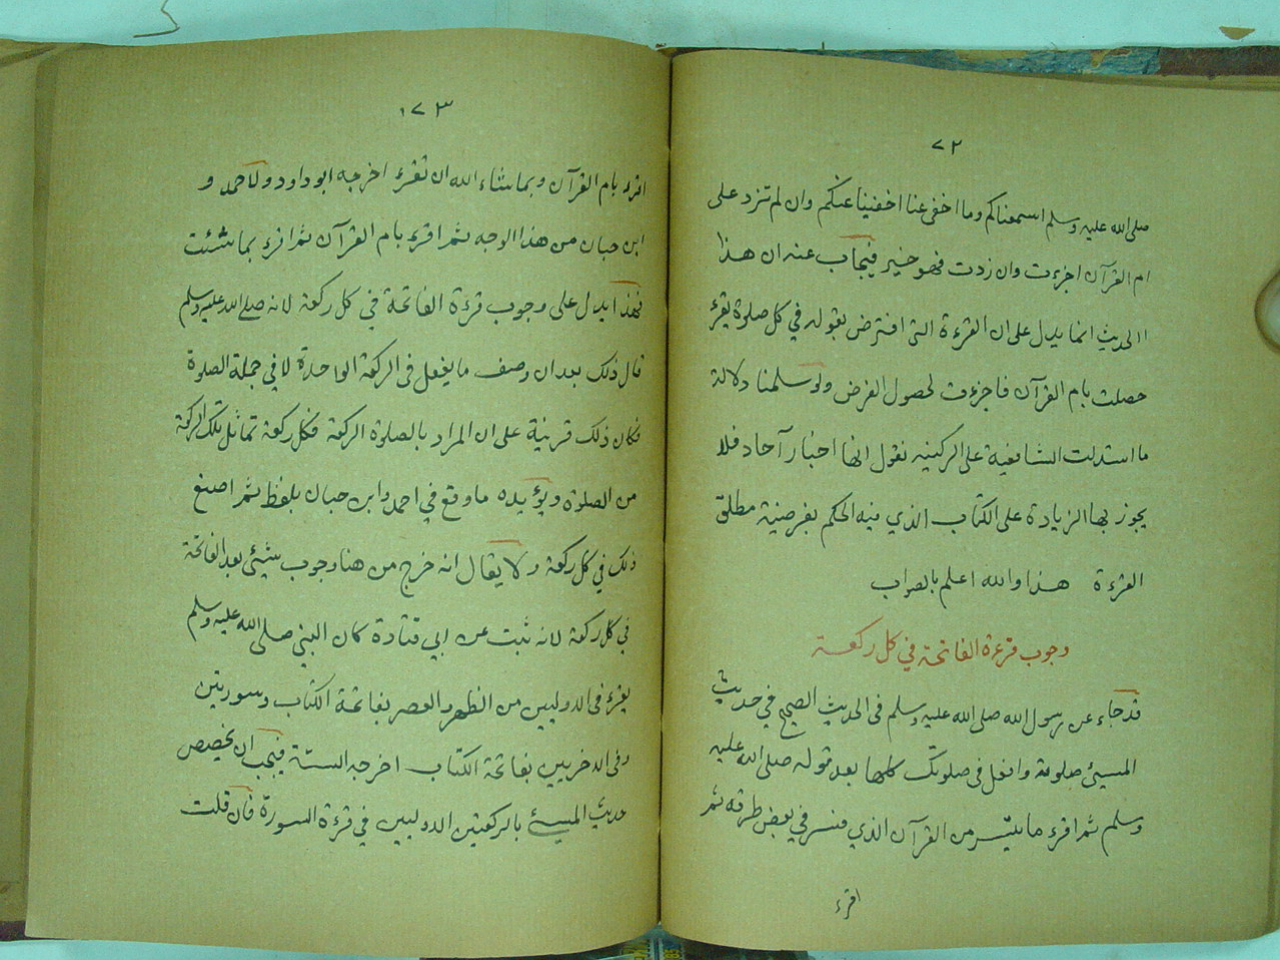 ٧٢
صلى الله عليه وسلم اسمعناكم وما اخفى عنا اخفينا عنكم وان لم تزد على
ام القرآن اجزءت وان زدت فهو خير فيجاب عنه ان هذا
الحديث انما يدل على ان القرءة التى افترض بقوله في كل صلوة يقرء
حصلت بام القرآن فاجزءت لحصول الفرض ولو سلمنا دلالة
ما استدلت الشافعية على الركنيه نقول انها اخبار آحاد فلا
يجوز بها الزيادة على الكتاب الذي فيه الحكم بفرضية مطلق
القرءة هذا والله اعلم بالصواب
وجوب قرءة الفاتحة في كل ركعة
قد جاء عن رسول الله صلى الله عليه وسلم فى الحديث الصحيح في حديث
المسيئ صلوته وافعل فى صلوتك كلها بعد قوله صلى الله عليه
وسلم ثم اقرء ما تيسر من القرآن الذي فسر في بعض طرقه ثم
اقرء
١٧٣
اقرء بام القرآن وبما شاء الله ان تقرء اخرجه ابو داود ولاحمد و
ابن حبان من هذا الوجه ثم اقرء بام القرآن ثم اقرء بما شئت
فهذا يدل على وجوب قرءة الفاتحة في كل ركعة لانه صلى الله عليه وسلم
قال ذلك بعد ان وصف ما يفعل فى الركعة الواحدة لا في جملة الصلوة
فكان ذلك قرينة على ان المراد بالصلوة الركعة فكل ركعة تماثل تلك الركعة
من الصلوة ويؤيده ما وقع في احمد وابن حبان بلفظ ثم اصنع
ذلك في كل ركعة ولا يقال انه خرج من هنا وجوب شيئ بعد الفاتحة
في كل ركعة لانه ثبت عن ابي قتادة كان النبي صلى الله عليه وسلم
يقرء فى الاوليين من الظهر والعصر بفاتحة الكتاب وسورتين
وفى الاخريين بفاتحة الكتاب اخرجه الستة فيجب ان تخصيص
حديث المسيئ بالركعتين الاوليين في قرءة السورة فان قلت